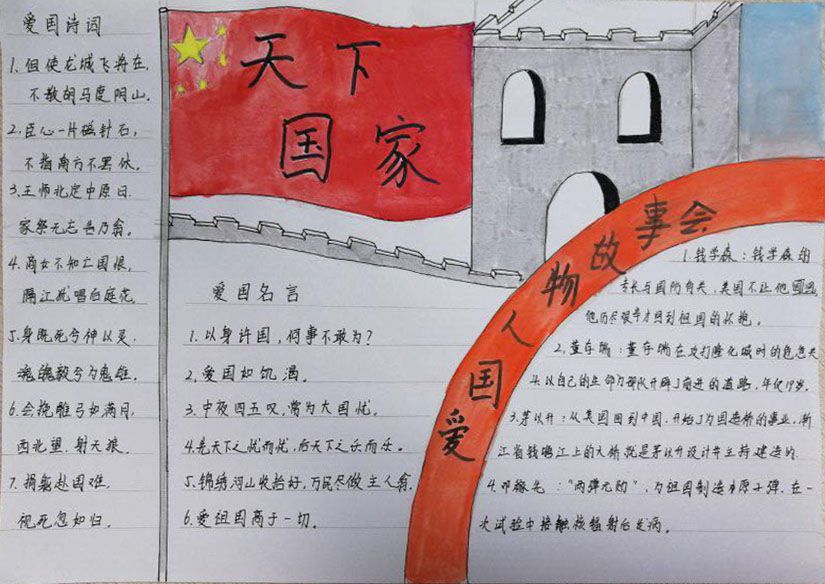 爱国诗词
1.但使龙城飞将在,
不教胡马度阴山。
2.臣心一片磁针石,
不指南方不罢休。
3.王师北定中原日
家祭无忘告乃翁。
4.商女不知亡国恨,
隔江犹唱后庭花
5.身既死兮神以灵.
魂魄毅兮为鬼雄.
6.会挽雕弓如满月,
西北望.射天狼.
7.捐躯赴国难,
视死忽如归.
天下
国家
爱国名言
1.以身许国,何事不敢为?
2.爱国如饥渴。
3.中夜四五叹,常为大国忧。
4.先天下之忧而忧,后天下之乐而乐。
5.锦绣河山收拾好,万民尽做主人翁.
6.爱祖国高于一切。
爱国人物故事会
1.钱学森:钱学森的
专长与国防有关,美国不让他回国
他历尽艰辛才回到祖国的怀抱。
2.董存瑞:董存瑞在攻打隆化城时的危急关
以自己的生命为部队开辟了前进的道路,年仅19岁。
3.茅以升:从美国回到中国.开始了为国造桥的事业,浙
江省钱塘江上的大桥就是茅以升设计并主持建造的.
4.邓稼先:"两弹元勋",为祖国制造原子弹.在一
次试验中接触核辐射后发病。